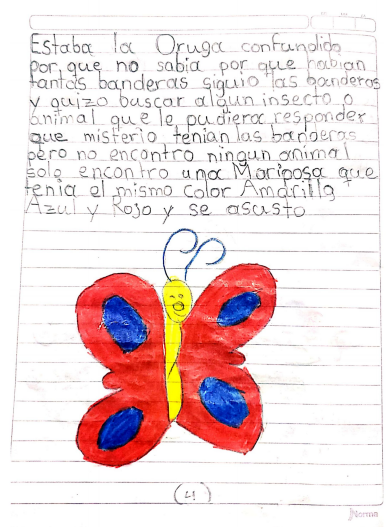 Estaba la Oruga confundido
por que no sabia por que habian
tantas banderas siguio las banderas
y quizo buscar algun insecto o
animal que le pudiera responder
que misterio tenian las banderas
pero no encontro ningun animal
solo encontro una Mariposa que
tenia el mismo color Amarillo
Azul y Rojo y se asusto
(4)
Norma